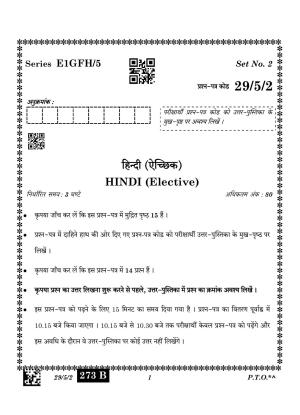 Series E1GFH/5
Set No. 2
प्रश्न-पत्र कोड 29/5/2
अनुक्रमांक :
परीक्षार्थी प्रश्न-पत्र कोड को उत्तर-पुस्तिका के
मुख-पृष्ठ पर अवश्य लिखें ।
हिन्दी (ऐच्छिक)
HINDI (Elective)
निर्धारित समय : 3 घण्टे
अधिकतम अंक : 80
कृपया जाँच कर लें कि इस प्रश्न-पत्र में मुद्रित पृष्ठ 15 हैं ।
प्रश्न-पत्र में दाहिने हाथ की ओर दिए गए प्रश्न-पत्र कोड को परीक्षार्थी उत्तर-पुस्तिका के मुख-पृष्ठ पर
लिखें ।
कृपया जाँच कर लें कि इस प्रश्न-पत्र में 14 प्रश्न हैं ।
कृपया प्रश्न का उत्तर लिखना शुरू करने से पहले, उत्तर-पुस्तिका में प्रश्न का क्रमांक अवश्य लिखें ।
इस प्रश्न-पत्र को पढ़ने के लिए 15 मिनट का समय दिया गया है । प्रश्न-पत्र का वितरण पूर्वाह्न में
10.15 बजे किया जाएगा । 10.15 बजे से 10.30 बजे तक परीक्षार्थी केवल प्रश्न-पत्र को पढ़ेंगे और
इस अवधि के दौरान वे उत्तर-पुस्तिका पर कोई उत्तर नहीं लिखेंगे ।
29/5/2 273 B 1 P.T.O.